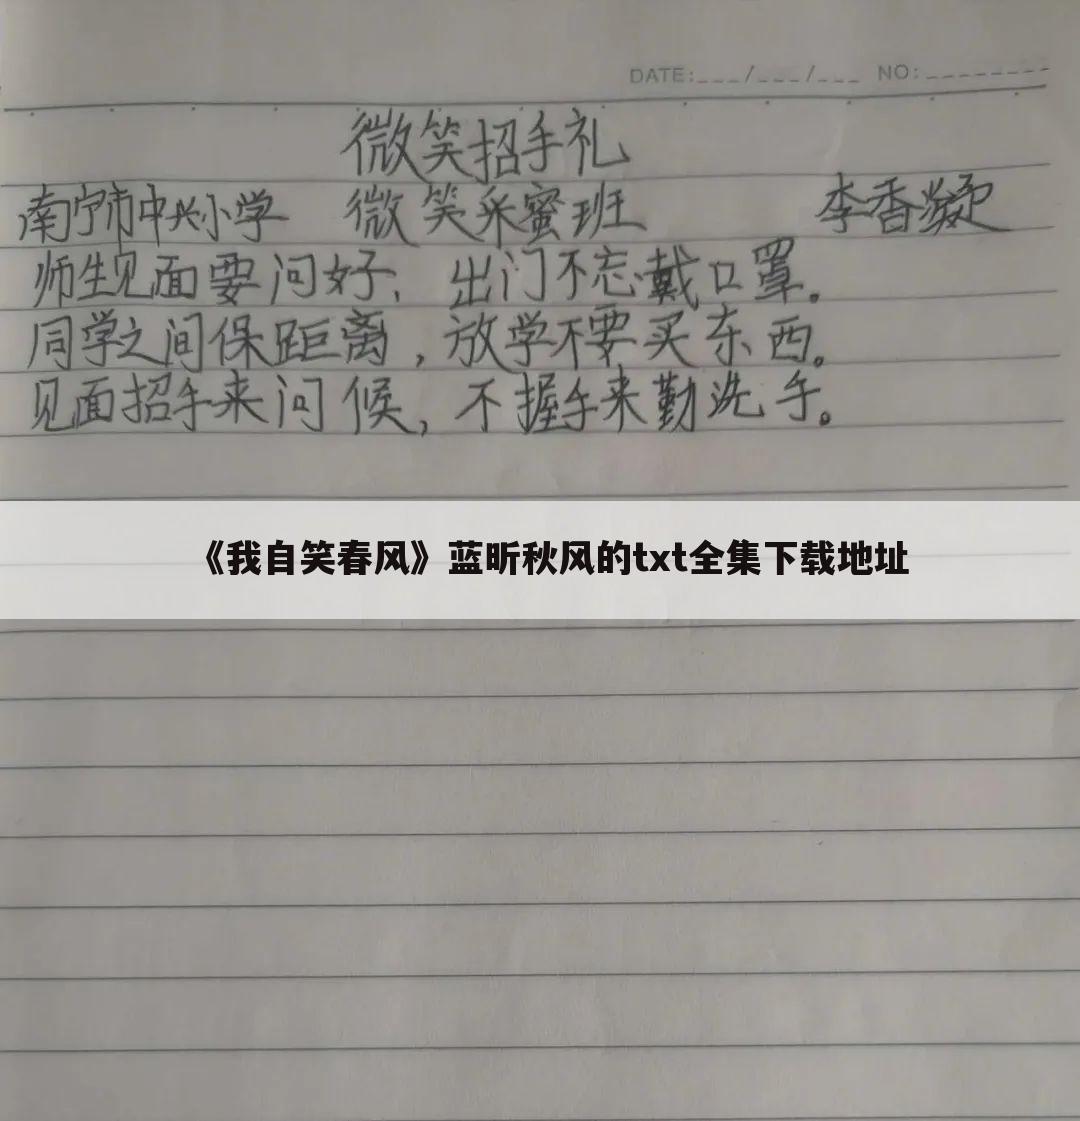 DATE:___/___/___ NO:________
微笑招手礼
南宁市中兴小学 微笑采蜜班 李香凝
师生见面要问好、出门不忘戴口罩。
同学之间保距离，放学不要买东西。
见面招手来问候，不握手来勤洗手。
《我自笑春风》蓝昕秋风的txt全集下载地址